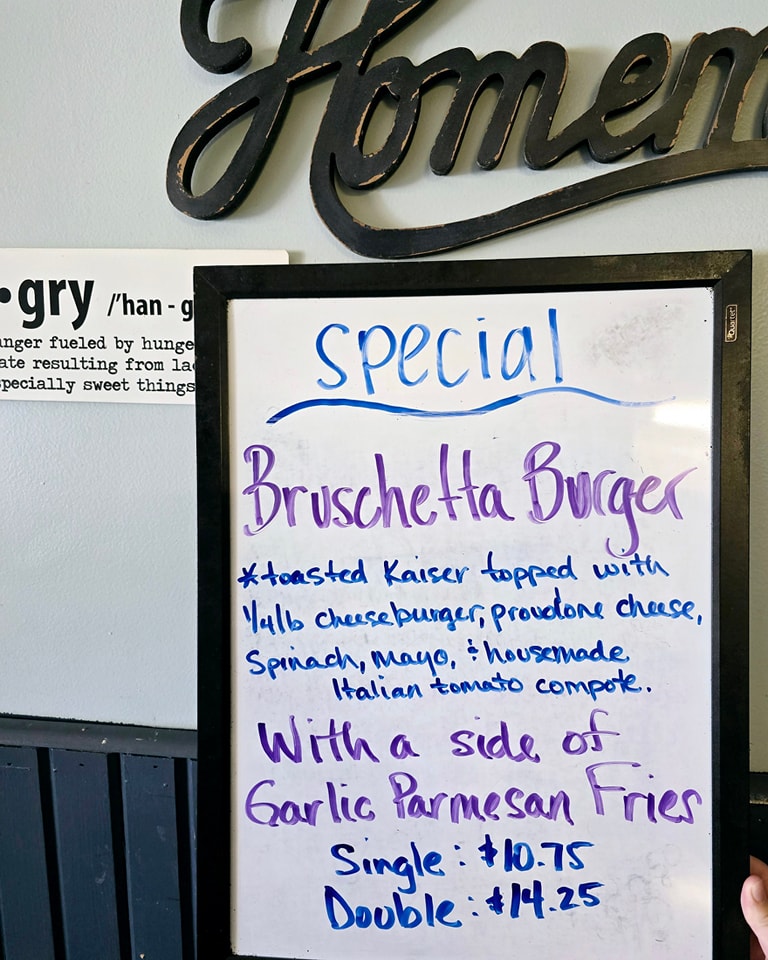 Homem
gry /'han - g
anger fueled by hunge
ate resulting from la
specially sweet things
Quartet
special
Bruschetta Burger
*toasted Kaiser topped with
1/4lb cheeseburger, provolone cheese,
Spinach, mayo, & housemade
Italian tomato compote.
With a side of
Garlic Parmesan Fries
Single: $10.75
Double: $14.25